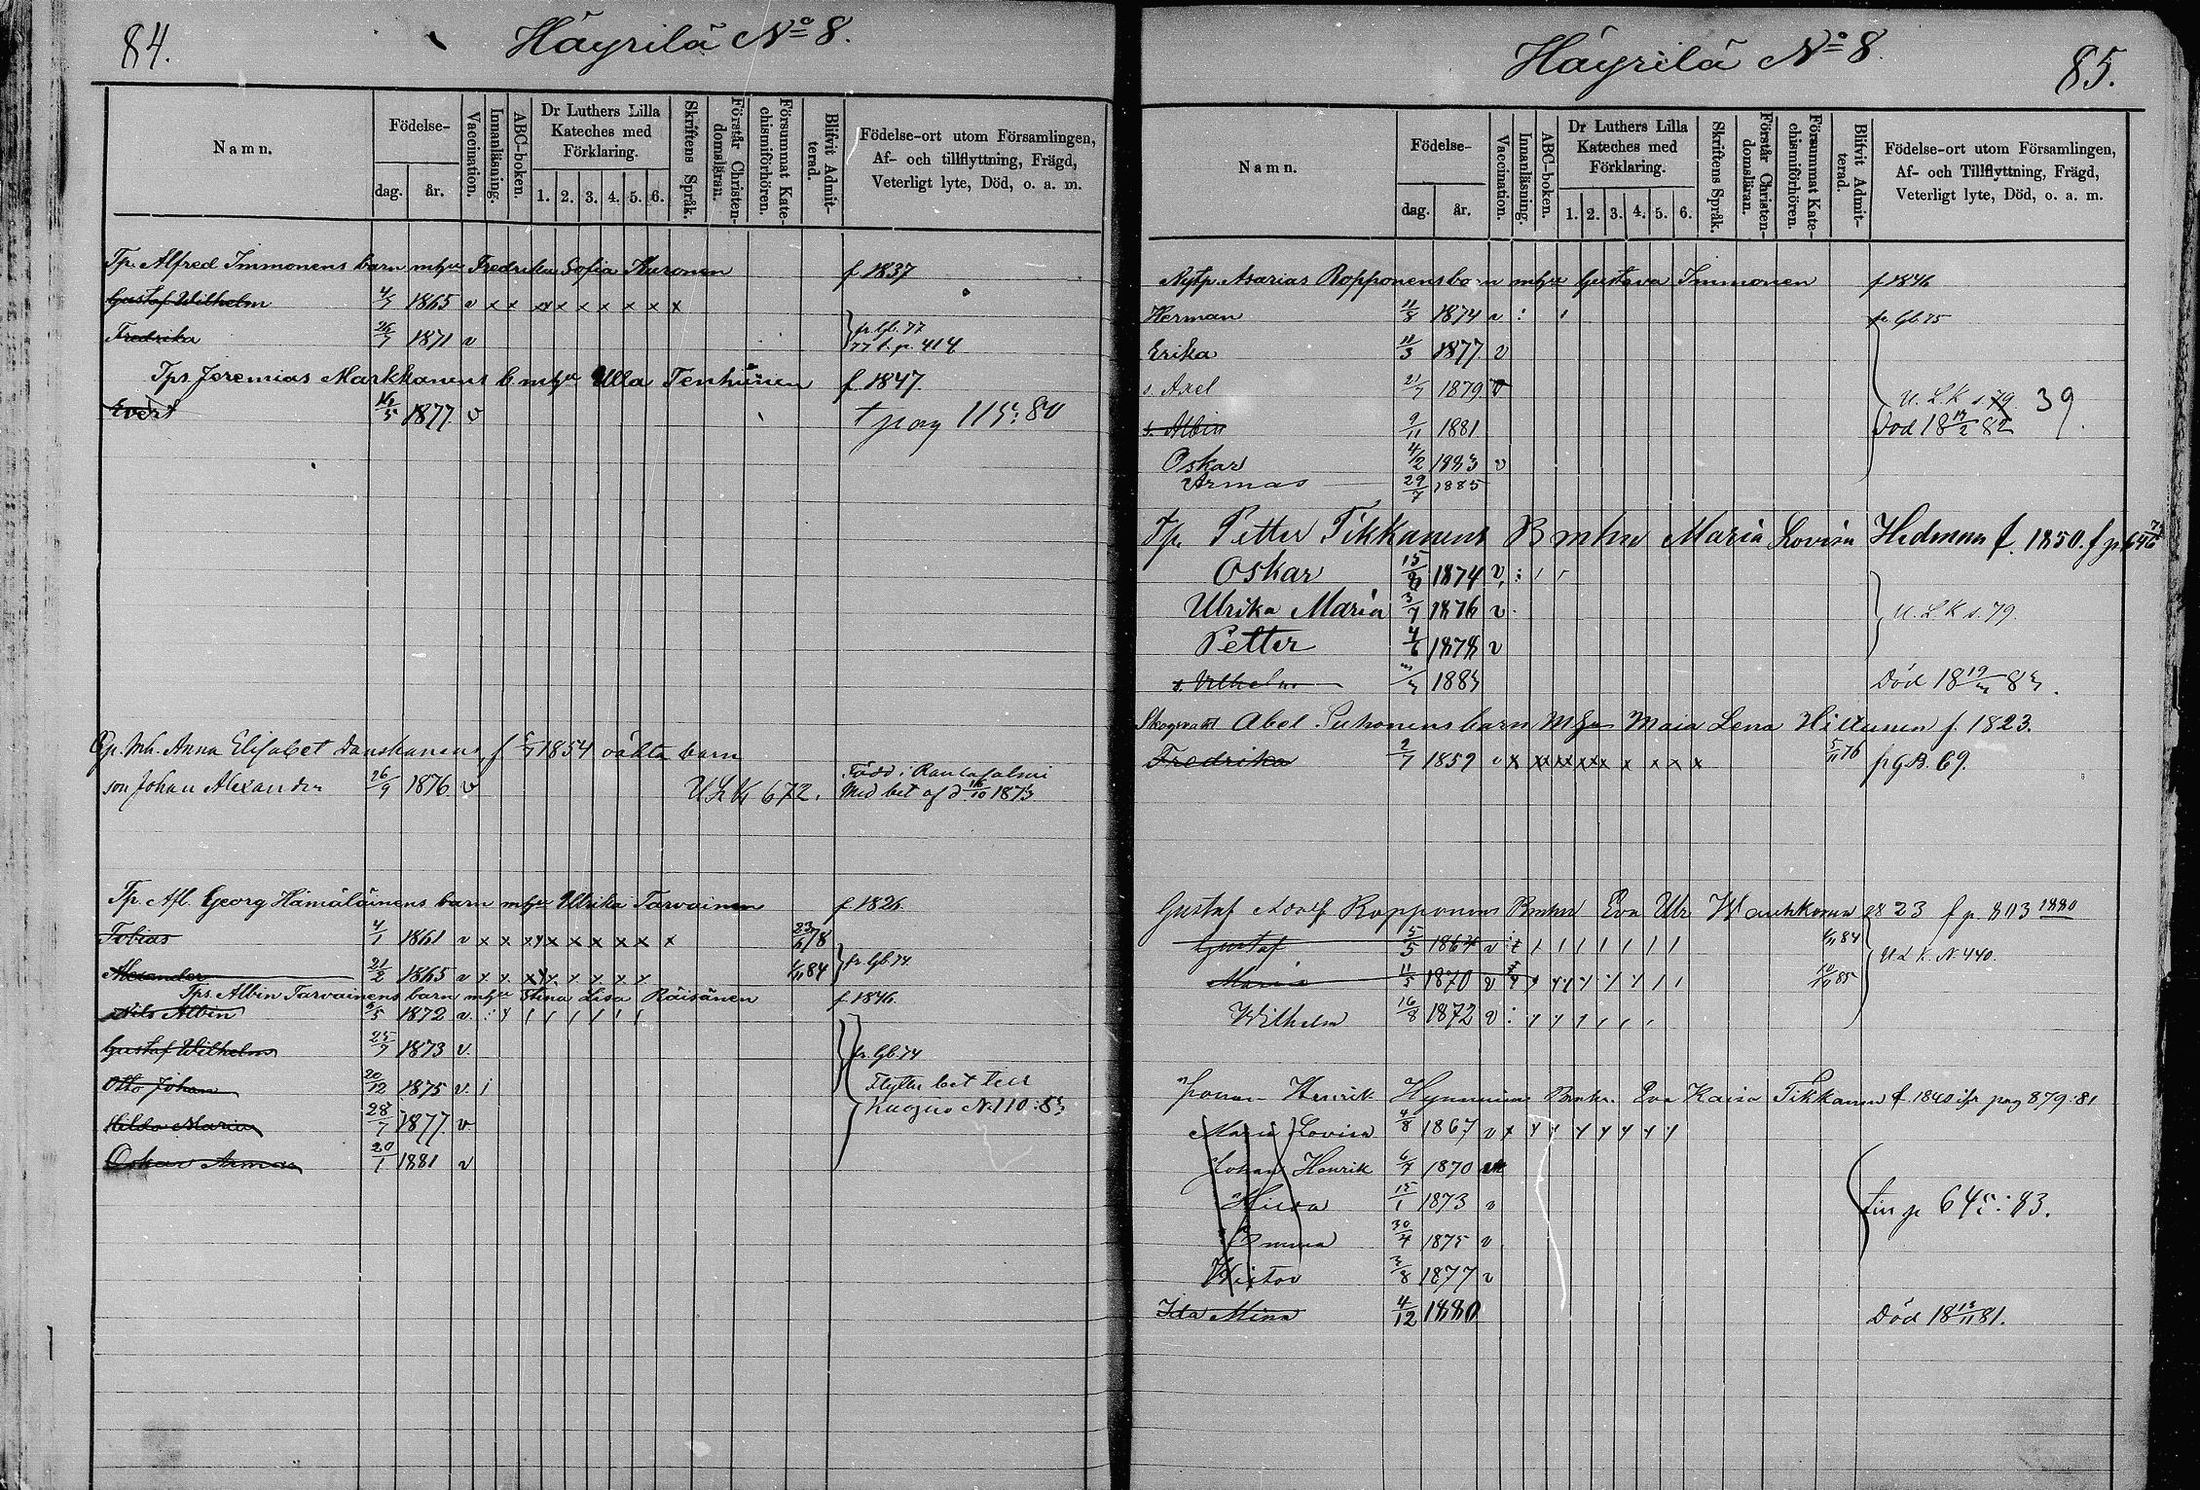 84.
Häyrilä No 8.
Namn.
Födelse-
dag.
år.
Vaccination.
Innanläsning.
ABC-boken.
Dr Luthers Lilla
Kateches med
Förklaring.
1. 2. 3. 4. 5. 6.
Skriftens Språk.
Förstår Christen-
domsläran.
Försummat Kate-
chismiförhören.
Blifvit Admit-
terad.
Födelse-ort utom Församlingen,
Af- och tillflyttning, Frägd,
Veterligt lyte, Död, o. a. m.
Tp. Alfred Immonens barn mhu Fredrika Sofia Kuronen f 1837
Gustaf Wilhelm 1865 v x x x x x x x x x
Fredrika 26/7 1871 v fr. Gb. 77
77 t. p. 414
Tps Jeremias Markkanens b mhu Ulla Tenhunen f 1847.
Evert 16/5 1877. v
Anna Elisabet 1854 oäkta barn
son Johan Alexander 26/9 1876 v U L K 672. Född i Rantasalmi
Med bet af d 16/10 1873
Tp. Afl. Georg Hämäläinens barn mhu Ulrika Tarvainen f 1826
Tobias 4/1 1861 v x x x x x x x x x 23/6 78
Alexander 21/2 1865 v 84 fr. Gb. 74.
Tps. Albin Tarvainens barn mhu Stina Lisa Räisänen f 1846
Nils Albin 6/5 1872 v
Gustaf Wilhelm 25/7 1873 v. fr. Gb. 74
Otto Johan 20/12 1875 v. Flyttn bet till
Hilda Maria 28/7 1877. v Kuopio N. 110: 83
Oskar Armas 20/1 1881 v
Häyrilä No 8.
85.
Namn.
Födelse-
dag.
år.
Vaccination.
Innanläsning.
ABC-boken.
Dr Luthers Lilla
Kateches med
Förklaring.
1. 2. 3. 4. 5. 6.
Skriftens Språk.
Förstår Christen-
domsläran.
Försummat Kate-
chismiförhören.
Blifvit Admit-
terad.
Födelse-ort utom Församlingen,
Af- och Tillflyttning, Frägd,
Veterligt lyte, Död, o. a. m.
Nytp. Asarias Ropponens barn mhu Gustava Immonen f 1846
Herman 11/8 1874 v fr. Gb. 75
Erika 11/3 1877 v
s. Axel 21/7 1879 v U. L. K s. 79. 39.
s. Albin 9/11 1881 Död 18 /2 82
Oskar 4/2 1883 v
Armas 29/7 1885
Tp. Petter Tikkanens B mhu Maria Lovisa Hedman f. 1850.
Oskar 1874 v
Ulrika Maria 1876 v. U. L K s. 79.
Petter 1878 v
s. Vilhelm 1883 Död 18 83.
Skogvakt Abel Suhonens barn Mhu Maia Lena Hiltunen f. 1823.
Fredrika 2/7 1859 v x x x x x x x x x x 5/11 76 f g B. 69.
Gustaf Adolf Ropponens Bmhu Eva Ulr Wauhkonen 23 f p. 803 1880
Gustaf 5/5 1864 v 84
Maria 11/5 1870 v 85 U L K. N. 440.
Wilhelm 16/8 1872 v
Henrik Hynninens Bmhu. Eva Kaisa Tikkanen f 1840 pag 879: 81
Maria Lovisa 4/8 1867 v
Johan Henrik 6/7 1870
Hilda 15/1 1873 v
Emma 30/4 1875 v
Wiktor 3/8 1877 v
Ida Mina 4/12 1880 Död 18 13/11 81.